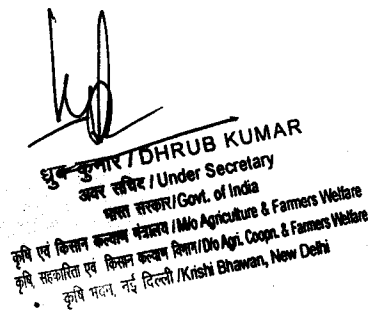 ध्रुब कुमार / DHRUB KUMAR
अवर सचिव / Under Secretary
भारत सरकार/Govt. of India
कृषि एवं किसान कल्याण मंत्रालय / M/o Agriculture & Farmers Welfare
कृषि, सहकारिता एवं किसान कल्याण विभाग / D/o Agri. Coopn. & Farmers Welfare
कृषि भवन, नई दिल्ली /Krishi Bhawan, New Delhi